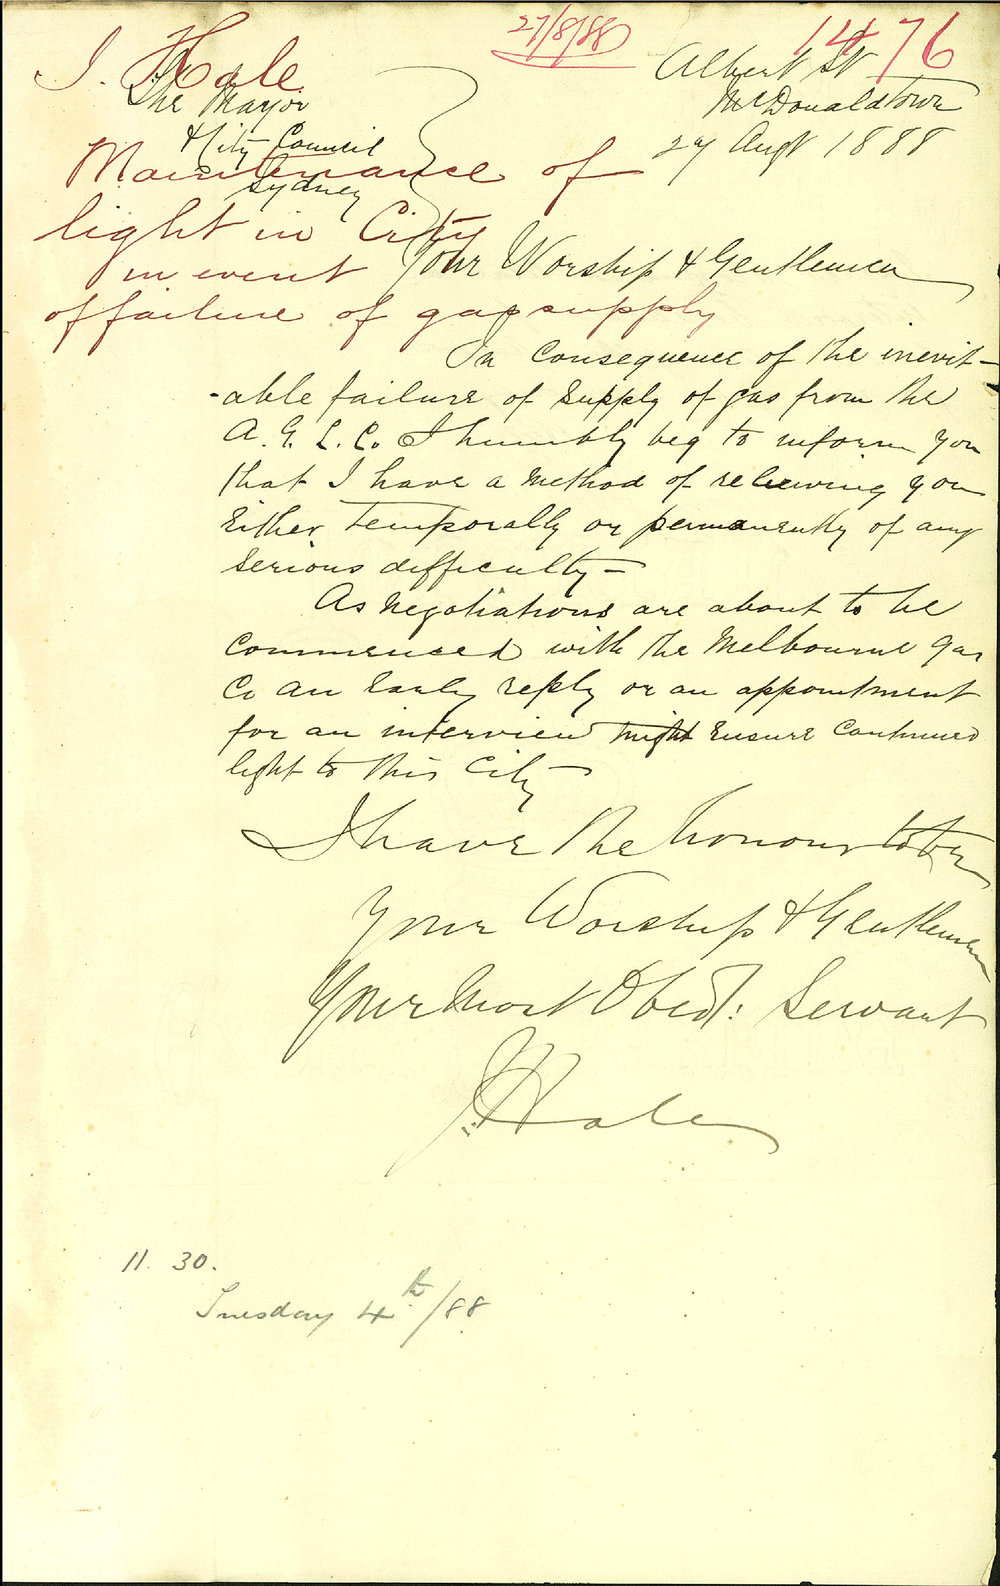 27/8/88
1476
J. Hale
Maintenance of
light in City
in event
of failure of gas supply
Albert St
McDonaldtown
27 Augt 1888
The Mayor
& City Council
Sydney
Your Worship & Gentlemen
In Consequence of the inevit-
-able failure of supply of gas from the
A. G. L. Co. I humbly beg to inform you
that I have a method of relieving you
Either temporally or permanently of any
serious difficulty —
As negotiations are about to be
Commenced with the Melbourne Gas
Co an Early reply or an appointment
for an interview might Ensure Continued
light to this City —
I have the honour to be
Your Worship & Gentlemen
Your Most Obedt: Servant
J. Hale
11. 30.
Tuesday 4th/88